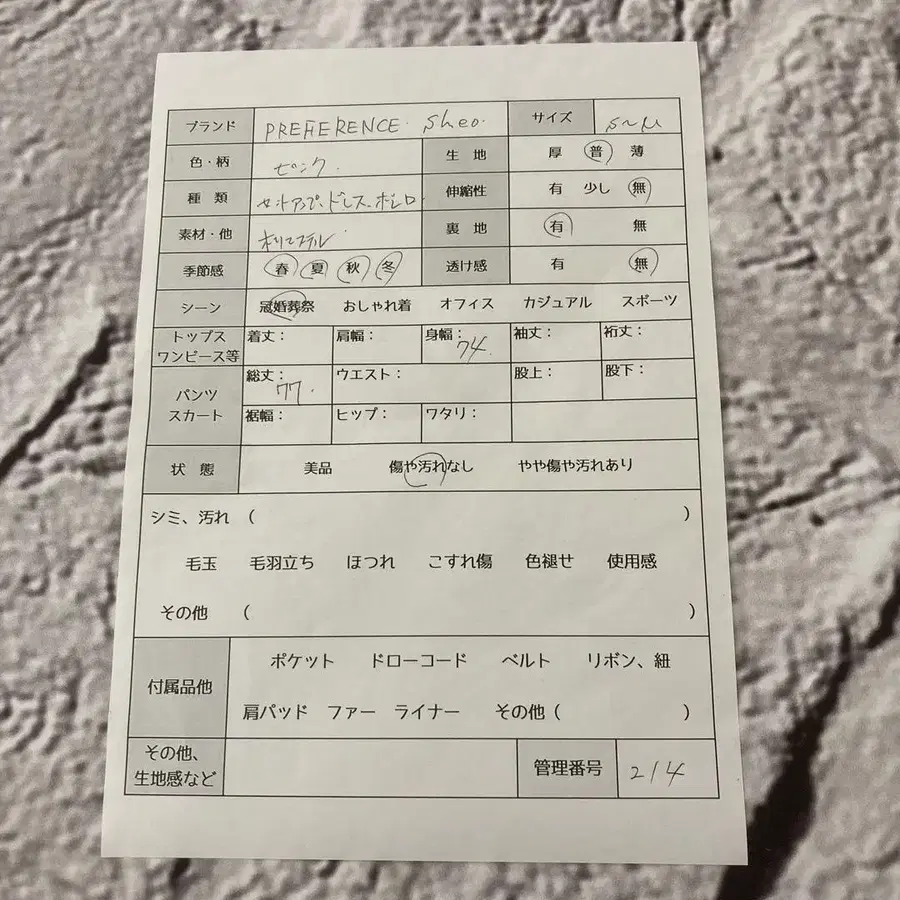 ブランド PREFERENCE Sheo. サイズ S~M
色・柄 ピンク 生地 厚 普 薄
種類 セットアップ、ドレス、ボレロ 伸縮性 有 少し 無
素材・他 ポリエステル 裏地 有 無
季節感 春 夏 秋 冬 透け感 有 無
シーン 冠婚葬祭 おしゃれ着 オフィス カジュアル スポーツ
トップス
ワンピース等 着丈: 肩幅: 身幅: 74. 袖丈: 裄丈:
パンツ
スカート 総丈: 77. ウエスト: 股上: 股下:
裾幅: ヒップ: ワタリ:
状態 美品 傷や汚れなし やや傷や汚れあり
シミ、汚れ ( )
毛玉 毛羽立ち ほつれ こすれ傷 色褪せ 使用感
その他 ( )
付属品他 ポケット ドローコード ベルト リボン、紐
肩パッド ファー ライナー その他 ( )
その他、
生地感など 管理番号 214